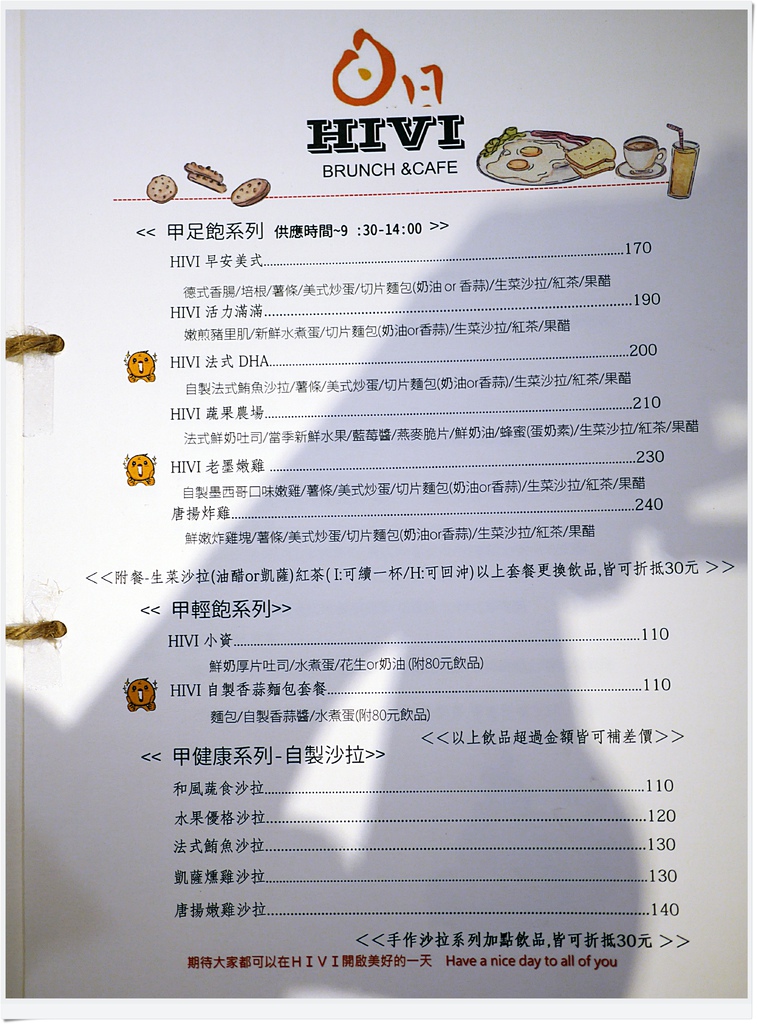 白日
HIVI
BRUNCH &CAFE
<< 甲足飽系列 供應時間~9 :30-14:00 >>
HIVI 早安美式..........170
德式香腸/培根/薯條/美式炒蛋/切片麵包(奶油 or 香蒜)/生菜沙拉/紅茶/果醋
HIVI 活力滿滿..........190
嫩煎豬里肌/新鮮水煮蛋/切片麵包(奶油or香蒜)/生菜沙拉/紅茶/果醋
HIVI 法式 DHA..........200
自製法式鮪魚沙拉/薯條/美式炒蛋/切片麵包(奶油or香蒜)/生菜沙拉/紅茶/果醋
HIVI 蔬果農場..........210
法式鮮奶吐司/當季新鮮水果/藍莓醬/燕麥脆片/鮮奶油/蜂蜜(蛋奶素)/生菜沙拉/紅茶/果醋
HIVI 老墨嫩雞..........230
自製墨西哥口味嫩雞/薯條/美式炒蛋/切片麵包(奶油or香蒜)/生菜沙拉/紅茶/果醋
唐揚炸雞..........240
鮮嫩炸雞塊/薯條/美式炒蛋/切片麵包(奶油or香蒜)/生菜沙拉/紅茶/果醋
<<附餐-生菜沙拉(油醋or凱薩)紅茶( I:可續一杯/H:可回沖)以上套餐更換飲品,皆可折抵30元 >>
<< 甲輕飽系列>>
HIVI 小資..........110
鮮奶厚片吐司/水煮蛋/花生or奶油 (附80元飲品)
HIVI 自製香蒜麵包套餐..........110
麵包/自製香蒜醬/水煮蛋(附80元飲品)
<<以上飲品超過金額皆可補差價>>
<< 甲健康系列-自製沙拉>>
和風蔬食沙拉..........110
水果優格沙拉..........120
法式鮪魚沙拉..........130
凱薩燻雞沙拉..........130
唐揚嫩雞沙拉..........140
<<手作沙拉系列加點飲品,皆可折抵30元 >>
期待大家都可以在HIVI開啟美好的一天 Have a nice day to all of you